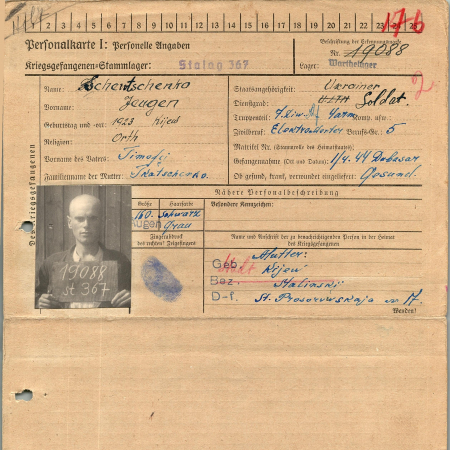 1 2 3 4 5 6 7 8 9 10 11 12 13 14 15 16 17 18 19 20 21 22 23 24 25
176
Personalkarte I: Personelle Angaben
Beschriftung der Erkennungsmarke
Nr. 19088
Kriegsgefangenen-Stammlager: Stalag 367
Lager: Warthelager
Des Kriegsgefangenen
Name: Schewtschenko
Vorname: Jeugen
Geburtstag und -ort: 1923 Kijew
Religion: Orth
Vorname des Vaters: Timofij
Familienname der Mutter: Tkatschenko.
Staatsangehörigkeit: Ukrainer
Dienstgrad: Soldat.
Truppenteil: Komp. usw.
Zivilberuf: Elektromonter Berufs-Gr.: 5
Matrikel Nr. (Stammrolle des Heimatstaates):
Gefangennahme (Ort und Datum): 1/4. 44 Dubasar
Ob gesund, krank, verwundet eingeliefert: Gesund.
Nähere Personalbeschreibung
Größe Haarfarbe
160. Schwarz
Augen Grau
Fingerabdruck
des rechten! Zeigefingers
Besondere Kennzeichen:
Name und Anschrift der zu benachrichtigenden Person in der Heimat
des Kriegsgefangenen
Mutter:
Geb. Stadt Kijew
Bez. Stalinski
D-f. St. Prosorowskaja nr 17.
Wenden!
19088
St 367